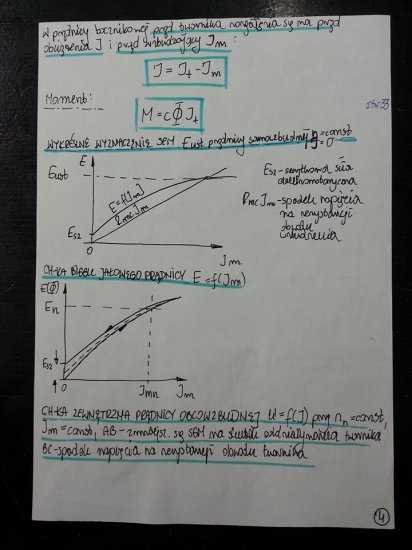 W prądnicy bocznikowej prąd twornika rozgałęzia się na prąd
obciążenia I i prąd wzbudzający Im:
I = It - Im
Moment:
str 33
M = cΦIt
WYKREŚLNE WYZNACZENIE SEM Eust prądnicy samowzbudnej n = const
I = 0
E
Eust
E=f(Im)
Rmc Im
Esz
0
Im
Esz - szczątkowa siła
elektromotoryczna
Rmc Im - spadek napięcia
na rezystancji
obwodu
wzbudzenia
CH-KA BIEGU JAŁOWEGO PRĄDNICY E = f(Im)
E(Φ)
En
Esz
0
Imn
Im
CH-KA ZEWNĘTRZNA PRĄDNICY OBCOWZBUDNEJ U = f(I) przy nn = const,
Im = const, AB - zmniejsz. się SEM na skutek oddziaływania twornika
BC - spadek napięcia na rezystancji obwodu twornika
4